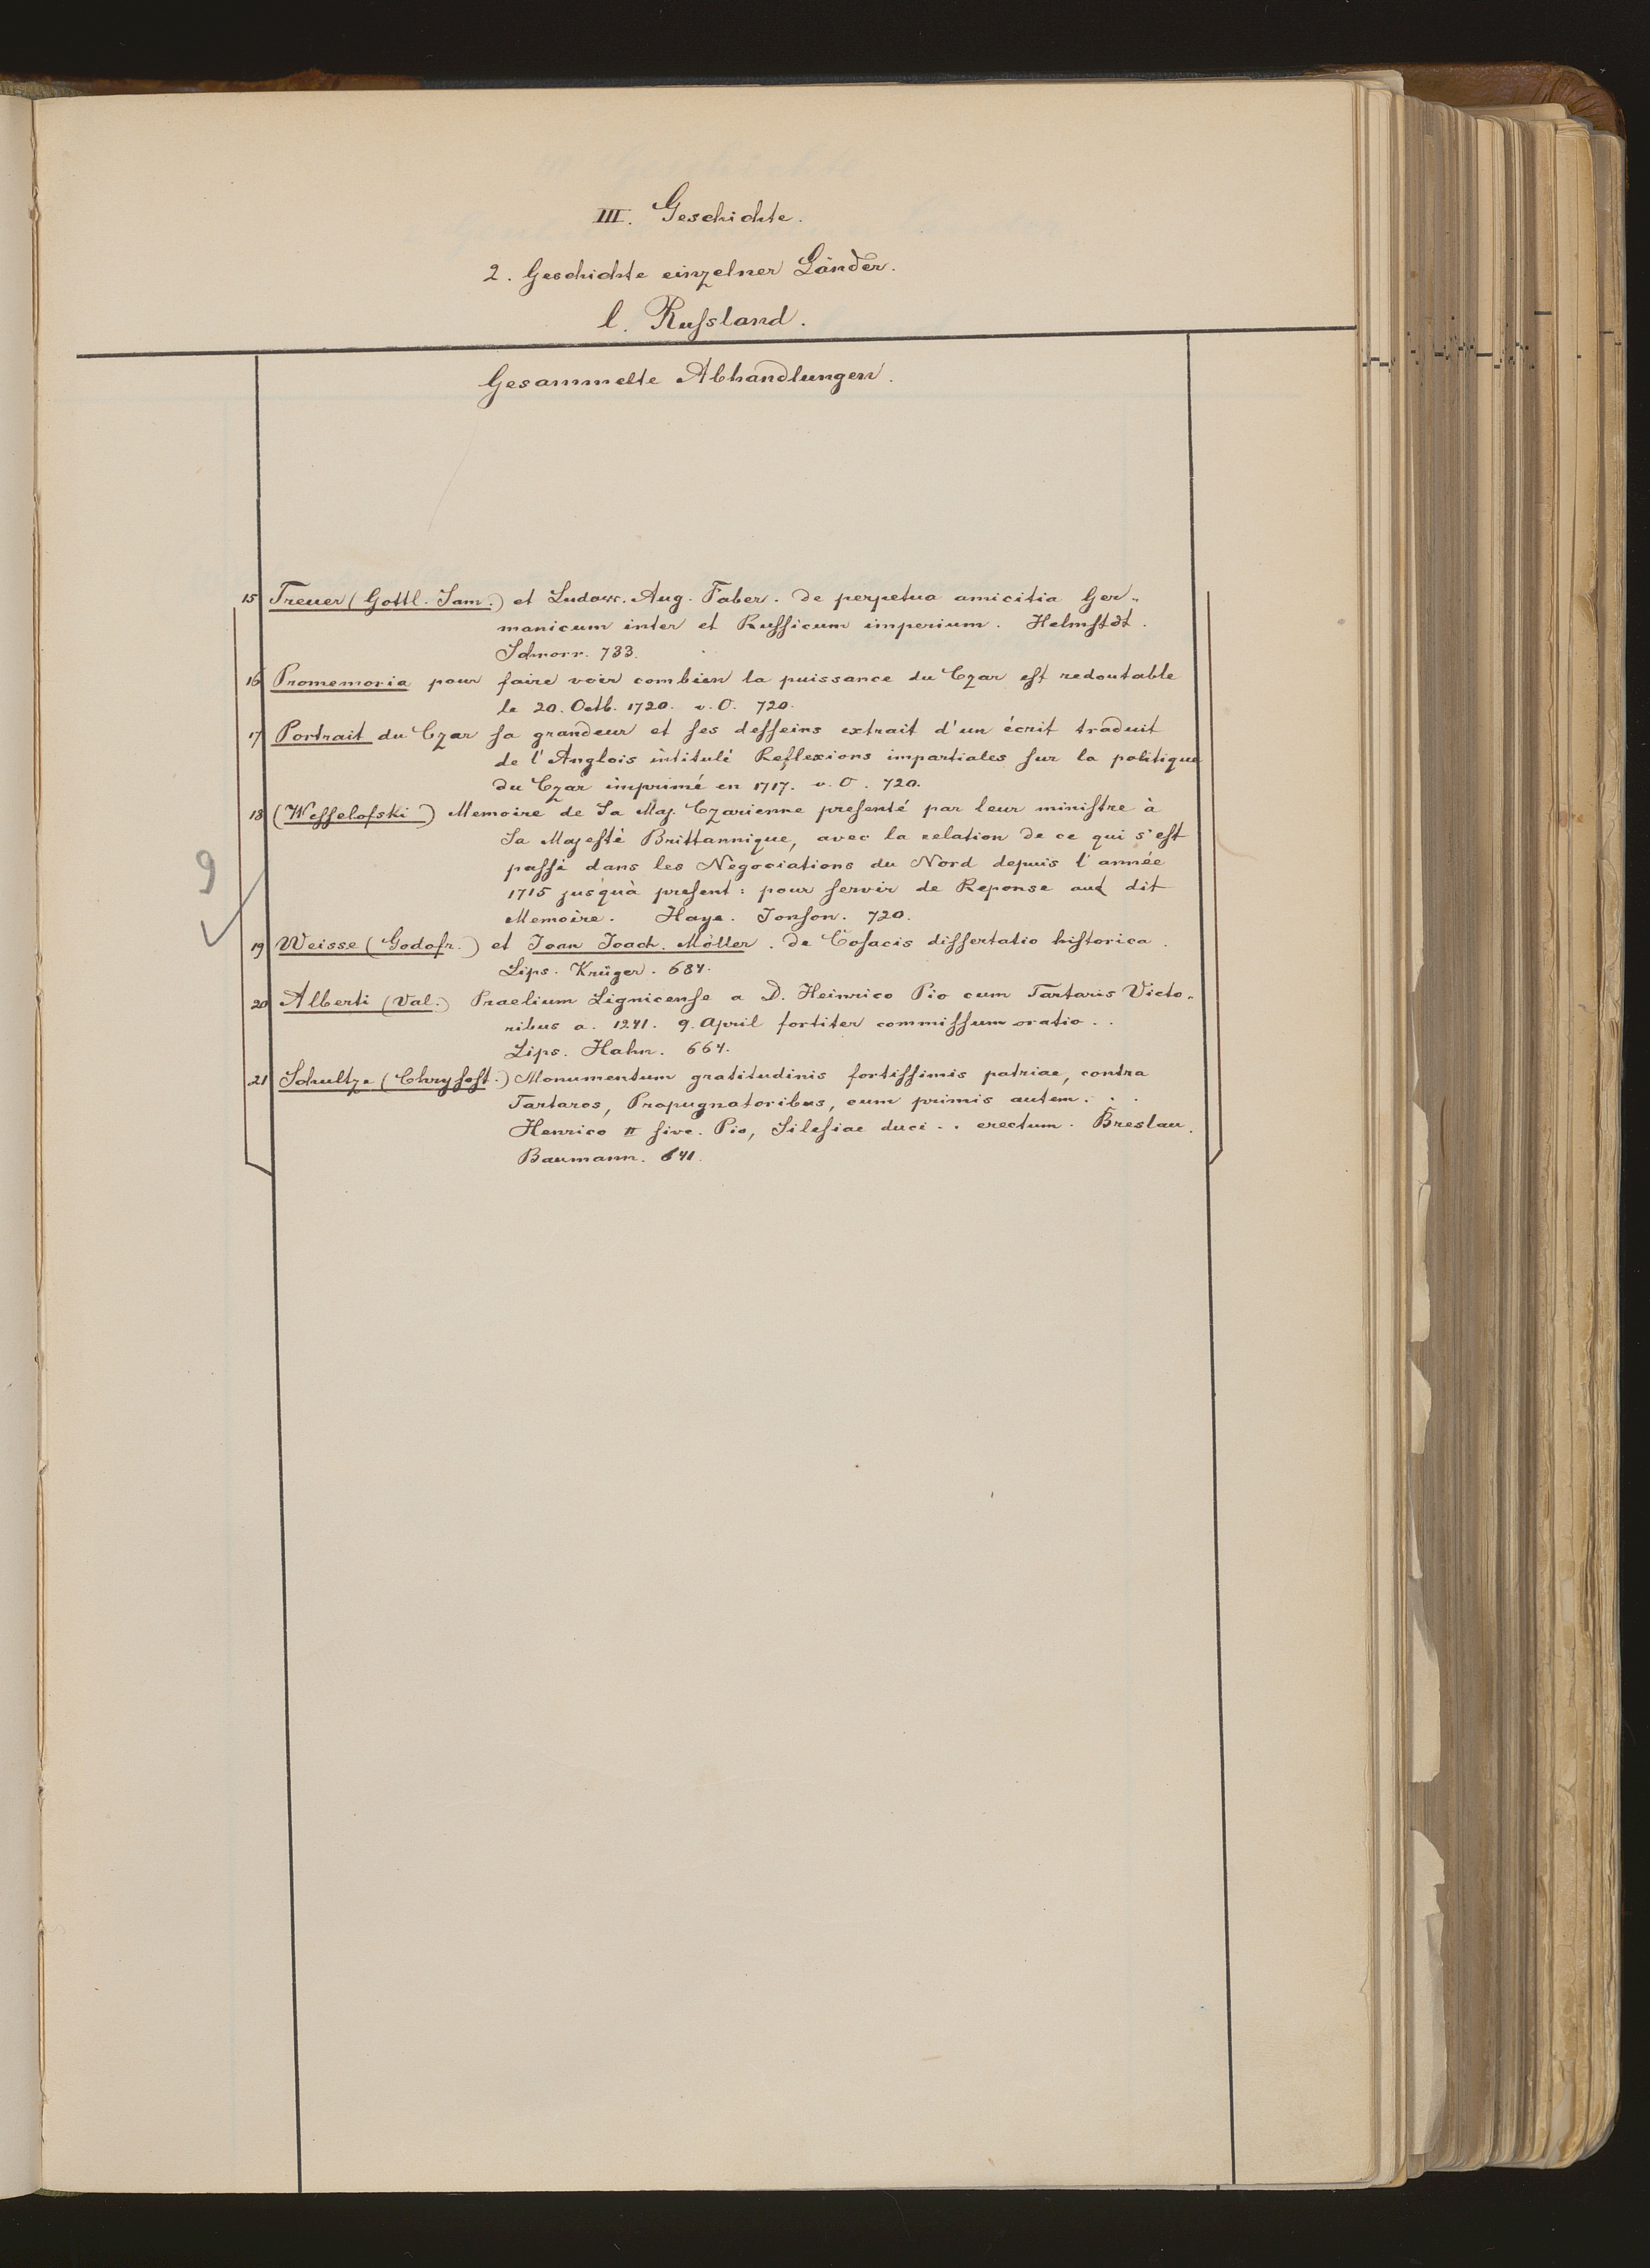 III. Geschichte.
2. Geschichte einzelner Länder.
l. Russland.
Gesammelte Abhandlungen.
15 Treuer (Gottl. Sam.) et Ludow. Aug. Faber. de perpetua amicitia Ger-
manicum inter et Russicum imperium. Helmstdt.
Schnorr. 733.
16 Promemoria pour faire voir combien la puissance du Czar est redoutable
le 20. Octb. 1720. o. O. 720.
17 Portrait du Czar sa grandeur et ses desseins extrait d'un écrit traduit
de l'Anglois intitulé Reflexions impartiales sur la politique
du Czar imprimé en 1717. o. O. 720.
18 (Wesselofski) Memoire de Sa Maj. Czarienne presenté par leur ministre à
Sa Majesté Brittannique, avec la relation de ce qui s'est
passé dans les Negociations du Nord depuis l'année
1715 jusquà present: pour servir de Reponse aud dit
Memoire. Haye. Jonson. 720.
9
19 Weisse (Godofr.) et Joan Joach. Möller. de Cosacis dissertatio historica.
Lips. Krüger. 684.
20 Alberti (Val.) Praelium Lignicense a D. Heinrico Pio cum Tartaris Victo-
ribus a. 1241. 9. April fortiter commissum oratio..
Lips. Hahn. 664.
21 Schultze (Chrysost.) Monumentum gratitudinis fortissimis patriae, contra
Tartaros, Propugnatoribus, cum primis autem...
Henrico II sive. Pio, Silesiae duci.. erectum. Breslau.
Baumann. 641.